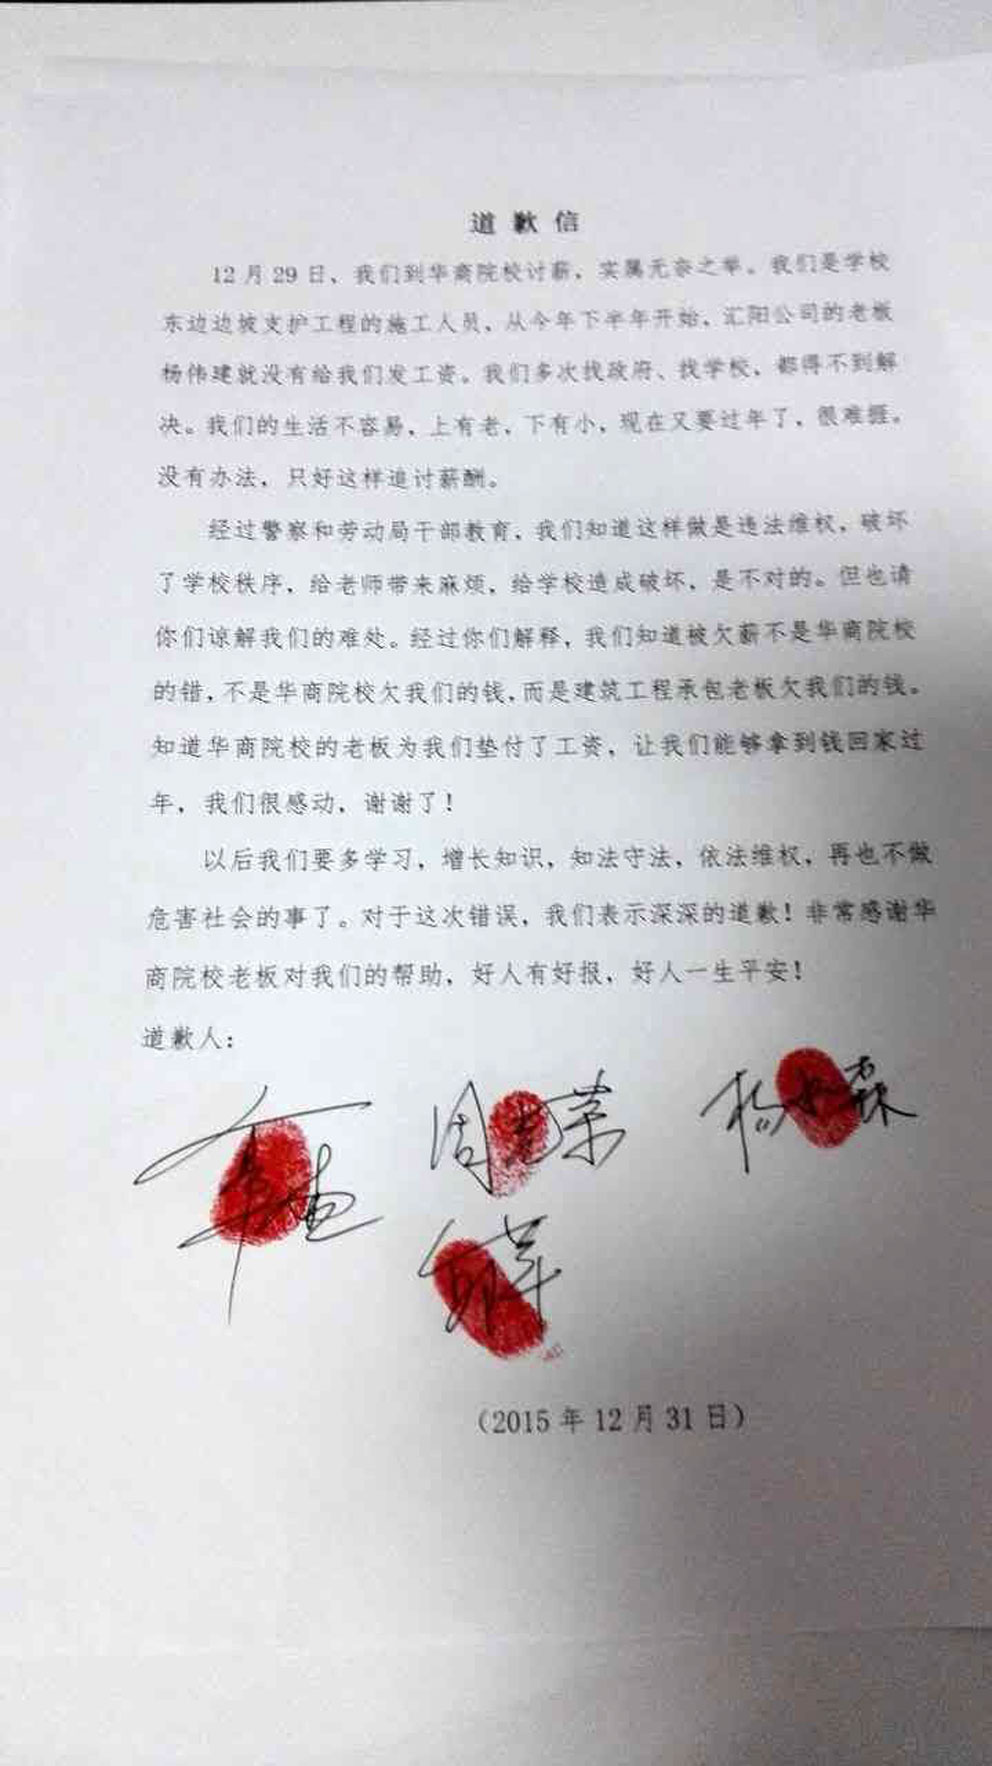 道歉信
12月29日，我们到华商院校讨薪，实属无奈之举。我们是学校
东边边坡支护工程的施工人员，从今年下半年开始，汇阳公司的老板
杨伟建就没有给我们发工资。我们多次找政府、找学校，都得不到解
决。我们的生活不容易，上有老，下有小，现在又要过年了，很难捱。
没有办法，只好这样追讨薪酬。
经过警察和劳动局干部教育，我们知道这样做是违法维权，破坏
了学校秩序，给老师带来麻烦，给学校造成破坏，是不对的。但也请
你们谅解我们的难处。经过你们解释，我们知道被欠薪不是华商院校
的错，不是华商院校欠我们的钱，而是建筑工程承包老板欠我们的钱。
知道华商院校的老板为我们垫付了工资，让我们能够拿到钱回家过
年，我们很感动，谢谢了！
以后我们要多学习，增长知识，知法守法，依法维权，再也不做
危害社会的事了。对于这次错误，我们表示深深的道歉！非常感谢华
商院校老板对我们的帮助，好人有好报，好人一生平安！
道歉人：
周 荣
杨 森
（2015年12月31日）